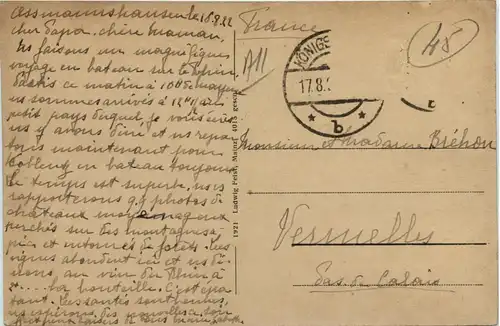 Assmannshausen le 16.8.22
Cher Papa, chère Maman,
Ns faisons un magnifique
voyage en bateau sur le Rhin
Partis ce matin à 10h de
ns sommes arrivés à 12h1/2 au
petit pays duquel je vous écris
ns y avons dîné et ns repar
tons maintenant pour
Coblenz en bateau toujours
Le temps est superbe. ns
rapporterons qq photos de
châteaux moyenageux
perchés sur des montagnes à
pics et entourés de forêts. Les
vignes abondent ici et ns dî
nons, au vin du Rhin à
la bouteille. C'est épa
tant. Les santés sont bonnes,
ns espérons des nouvelles à
baisers de tous
1921 Ludwig Feist, Mainz 401 gesch.
France
All
KÖNIGS
17.8.2
* b *
45
Monsieur et Madame Bréhon
Vermelles
Pas-de-Calais